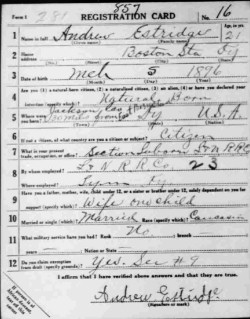 Form 1 281 557 REGISTRATION CARD No. 16
1 Name in full Andrew Estridge Age, in yrs. 21
2 Home address Boston Sta Ky
3 Date of birth Mch 5 1896
4 Are you (1) a natural-born citizen, (2) a naturalized citizen, (3) an alien, (4) or have you declared your intention (specify which)? Natural Born
5 Where were you born? Ky U.S.A
6 If not a citizen, of what country are you a citizen or subject? Citizen
7 What is your present trade, occupation, or office? Section
8 By whom employed? L & N. R. R Co. 23
Where employed?
9 Have you a father, mother, wife, child under 12, or a sister or brother under 12, solely dependent on you for support (specify which)? Wife one child
10 Married or single (which)? Married Race (specify which)? Caucasian
11 What military service have you had? Rank No
years Nation or State
12 Do you claim exemption from draft (specify grounds)? Yes. See #9
I affirm that I have verified above answers and that they are true.
Andrew Estridge
(Signature or mark)